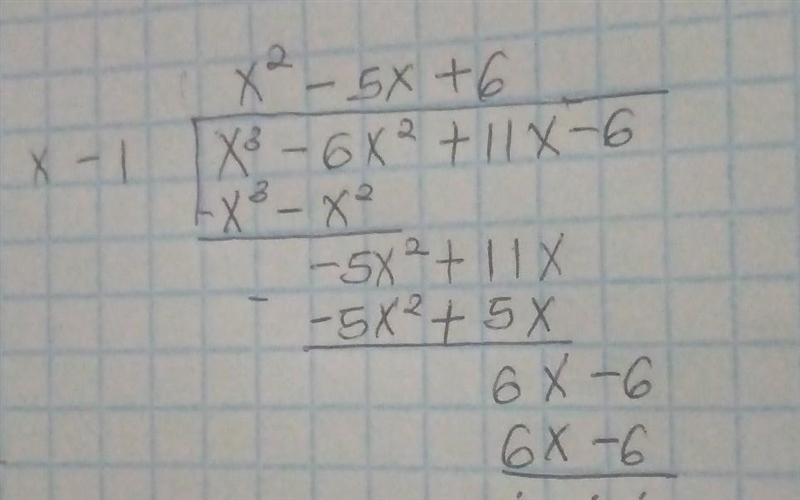 x² - 5x + 6
x - 1 x³ - 6x² + 11x - 6
- x³ - x²
-5x² + 11x
- -5x² + 5x
6x - 6
6x - 6